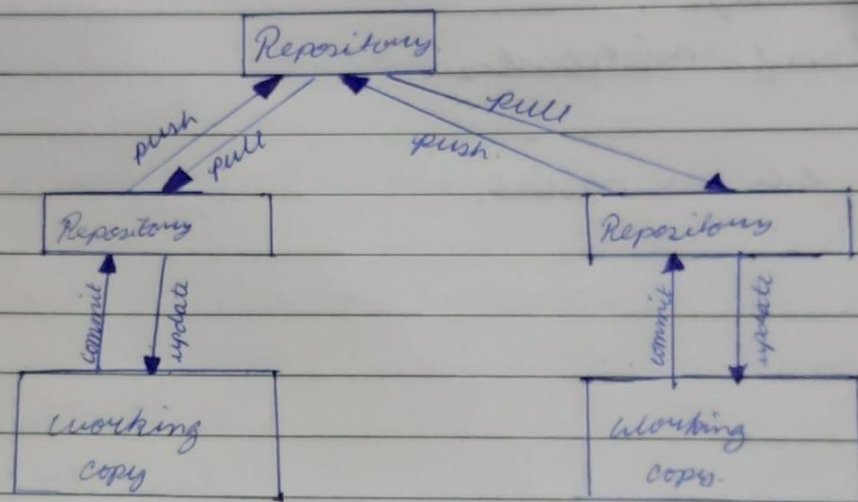 Repository
push
pull
push.
pull
Repository
Repository
commit
update
commit
update
working
copy
working
copy.